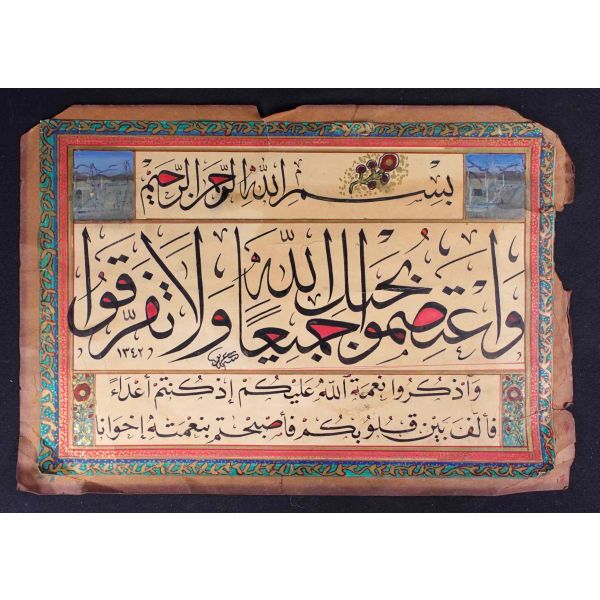 بسم الله الرحمن الرحيم
واعتصموا بحبل الله جميعا ولا تفرقوا
١٣٤٢
وَٱذكُرُوا نِعمَةَ ٱللهِ عَلَيكُم إِذ كُنتُم أَعدَاءً
فَأَلَّفَ بَينَ قُلُوبِكُم فَأَصبَحتُم بِنِعمَتِهِ إِخوَانًا